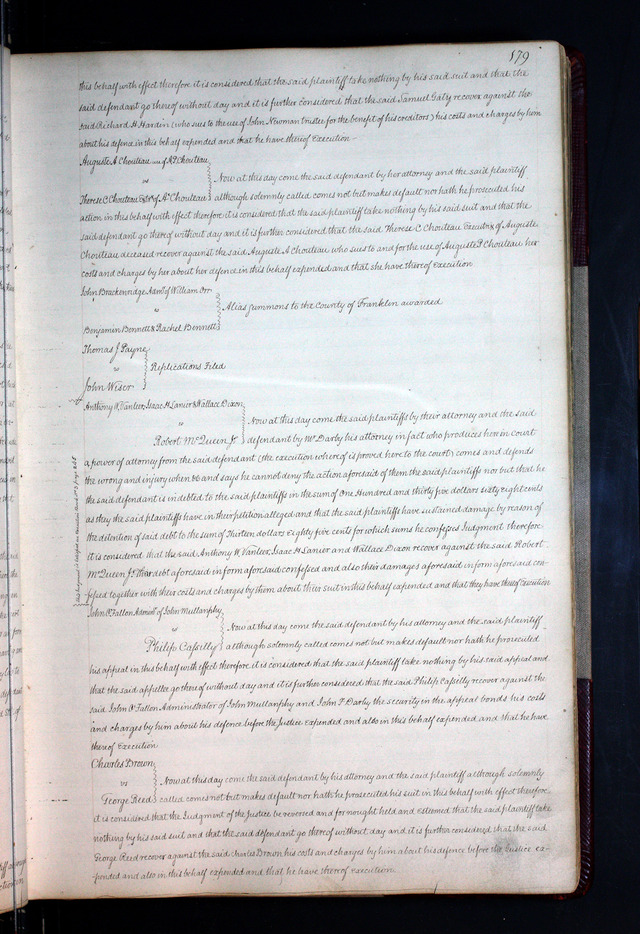 179
this behalf with effect therefore it is considered that the said plaintiff take nothing by his said suit and that the
said defendant go thereof without day and it is further considered that the said Samuel Gaty recover against the
said Richard H. Hardin (who sues to the use of John Newman trustee for the benefit of his creditors) his costs and charges by him
about his defence in this behalf expended and that he have thereof Execution
Auguste A Chouteau use of A. P. Chouteau
vs
Now at this day come the said defendant by her attorney and the said plaintiff
Therese C Chouteau Extx of As Chouteau although solemnly called comes not but makes default nor hath he prosecuted his
action in this behalf with effect therefore it is considered that the said plaintiff take nothing by his said suit and that the
said defendant go thereof without day and it is further considered that the said Therese C Chouteau Executrix of Auguste
Chouteau deceased recover against the said Auguste A Chouteau who sues to and for the use of Auguste P Chouteau her
costs and charges by her about her defence in this behalf expended and that she have thereof Execution
John Brackenridge Admr of William Orr
vs
Alias Summons to the County of Franklin awarded
Benjamin Bennett & Rachel Bennett
Thomas J Payne
vs
Replications Filed
John Wiser
Anthony W. Vanleer, Isaac H Lanier & Wallace Dixon
vs
Now at this day come the said plaintiffs by their attorney and the said
Robert McQueen Jr. defendant by Mr Darby his attorney in fact who produces here in court
a power of attorney from the said defendant (the execution where of is proved here to the court) comes and defends
the wrong and injury when &c and says he cannot deny the action aforesaid of them the said plaintiffs nor but that he
the said defendant is indebted to the said plaintiffs in the sum of One Hundred and thirty five dollars sixty eight cents
as they the said plaintiffs have in their petition alleged and that the said plaintiffs have sustained damage by reason of
the detention of said debt to the sum of Thirteen dollars Eighty five cents for which sums he confesses Judgment therefore
it is considered that the said Anthony W. Vanleer, Isaac H Lanier and Wallace Dixon recover against the said Robert
McQueen Jr. their debt aforesaid in form aforesaid confessed and also their damages aforesaid in form aforesaid con-
fessed together with their costs and charges by them about their suit in this behalf expended and that they have thereof Execution
John O'Fallon Admr of John Mullanphy
vs
Now at this day come the said defendant by his attorney and the said plaintiff
Philip Cafsilly although solemnly called comes not but makes default nor hath he prosecuted
his appeal in this behalf with effect therefore it is considered that the said plaintiff take nothing by his said appeal and
that the said appellee go thereof without day and it is further considered that the said Philip Cafsilly recover against the
said John O'Fallon Administrator of John Mullanphy and John F. Darby the security in the appeal bonds his costs
and charges by him about his defence before the Justice expended and also in this behalf expended and that he have
thereof Execution
Charles Brown
vs
Now at this day come the said defendant by his attorney and the said plaintiff although solemnly
George Reed called comes not but makes default nor hath he prosecuted his suit in this behalf with effect therefore
it is considered that the Judgment of the Justice be reversed and for nought held and esteemed that the said plaintiff take
nothing by his said suit and that the said defendant go thereof without day and it is further considered that the said
George Reed recover against the said Charles Brown his costs and charges by him about his defence before the Justice ex-
pended and also in this behalf expended and that he have thereof execution.